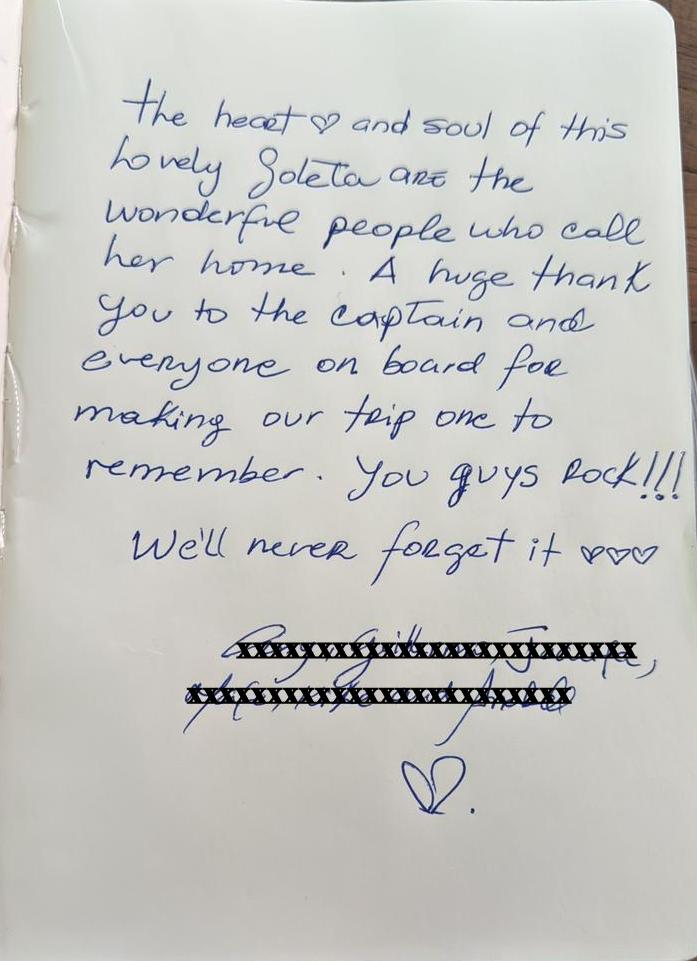 the heart ♡ and soul of this
Lovely Goleta are the
wonderful people who call
her home. A huge thank
you to the captain and
everyone on board for
making our trip one to
remember. You guys Rock!!!
We'll never forget it ♡♡♡